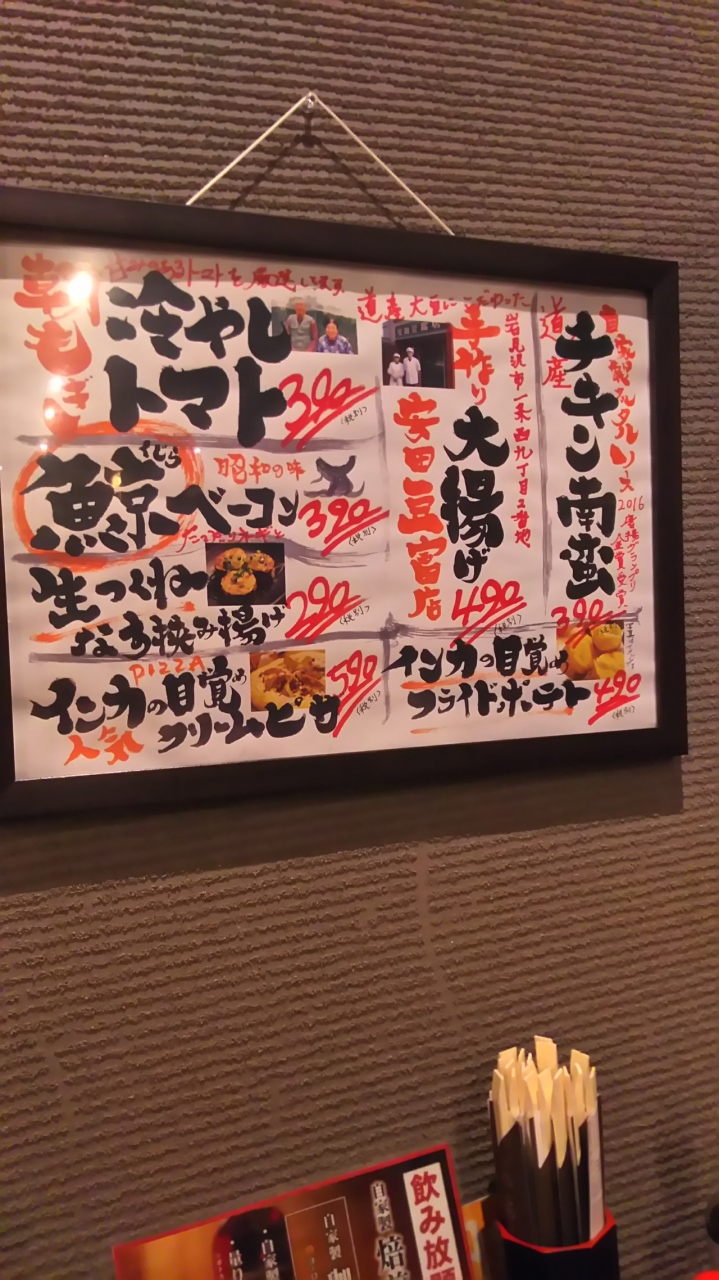 朝もぎ
トマトを厳選してます
冷やし
トマト
390
(税別)
鯨ベーコン
くじら
昭和の味
390
(税別)
生つくね
なす挟み揚げ
290
(税別)
PIZZA
インカの目覚め
クリームピザ
人気
590
(税別)
道産大豆にこだわった
手作り
大揚げ
安田豆富店
岩見沢市一条西九丁目2番地
490
(税別)
道産
チキン南蛮
自家製タルタルソース
2016
唐揚グランプリ
金賞受賞
390
インカの目覚め
フライドポテト
490
(税別)
飲み放題
自家製
自家製
自家製